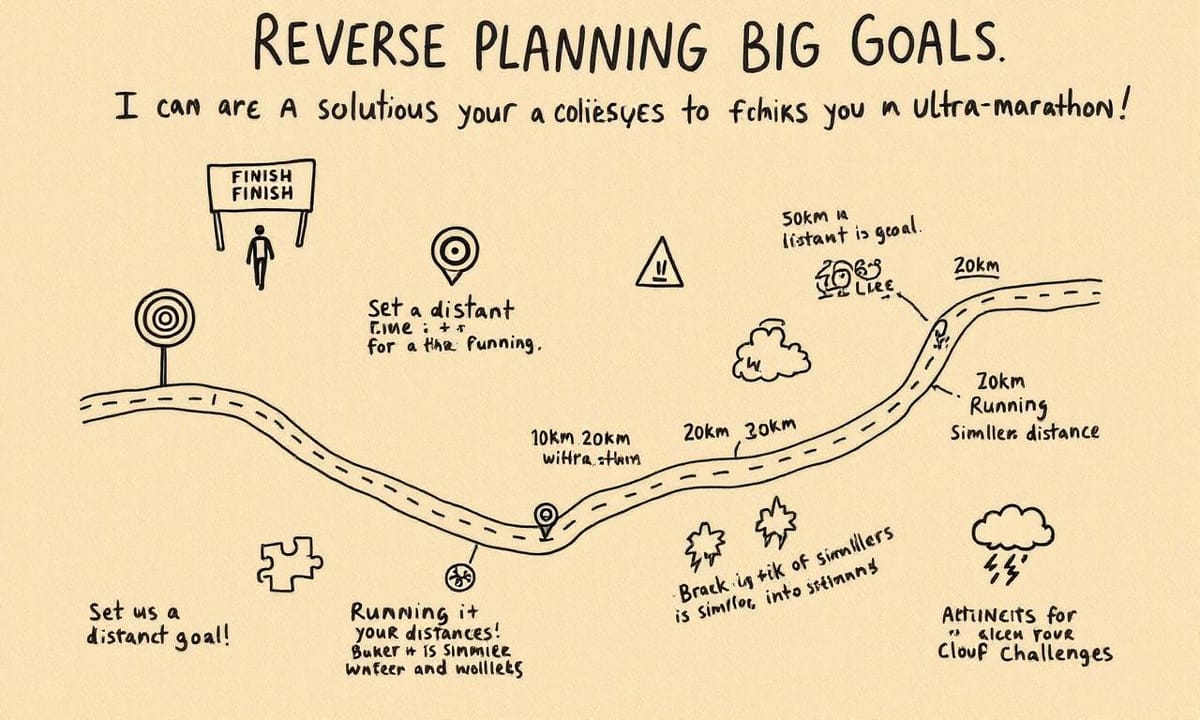 REVERSE PLANNING BIG GOALS.
I can are A solutious your a colięsyes to fchiks you n ultra-marathon!
FINISH
FINISH
Set a distant
for a the funning.
50km is
listant is goal.
LIKE
20km
20km
Running
Simllers distance
10km 20km
20km, 30km
Set us a
distanct goal!
Running it
your distances!
Baker it is Simmiee
wnfeer and wolllets
Brack is tik of simmillers
is simfloc into
for
Your
Clouf Challenges